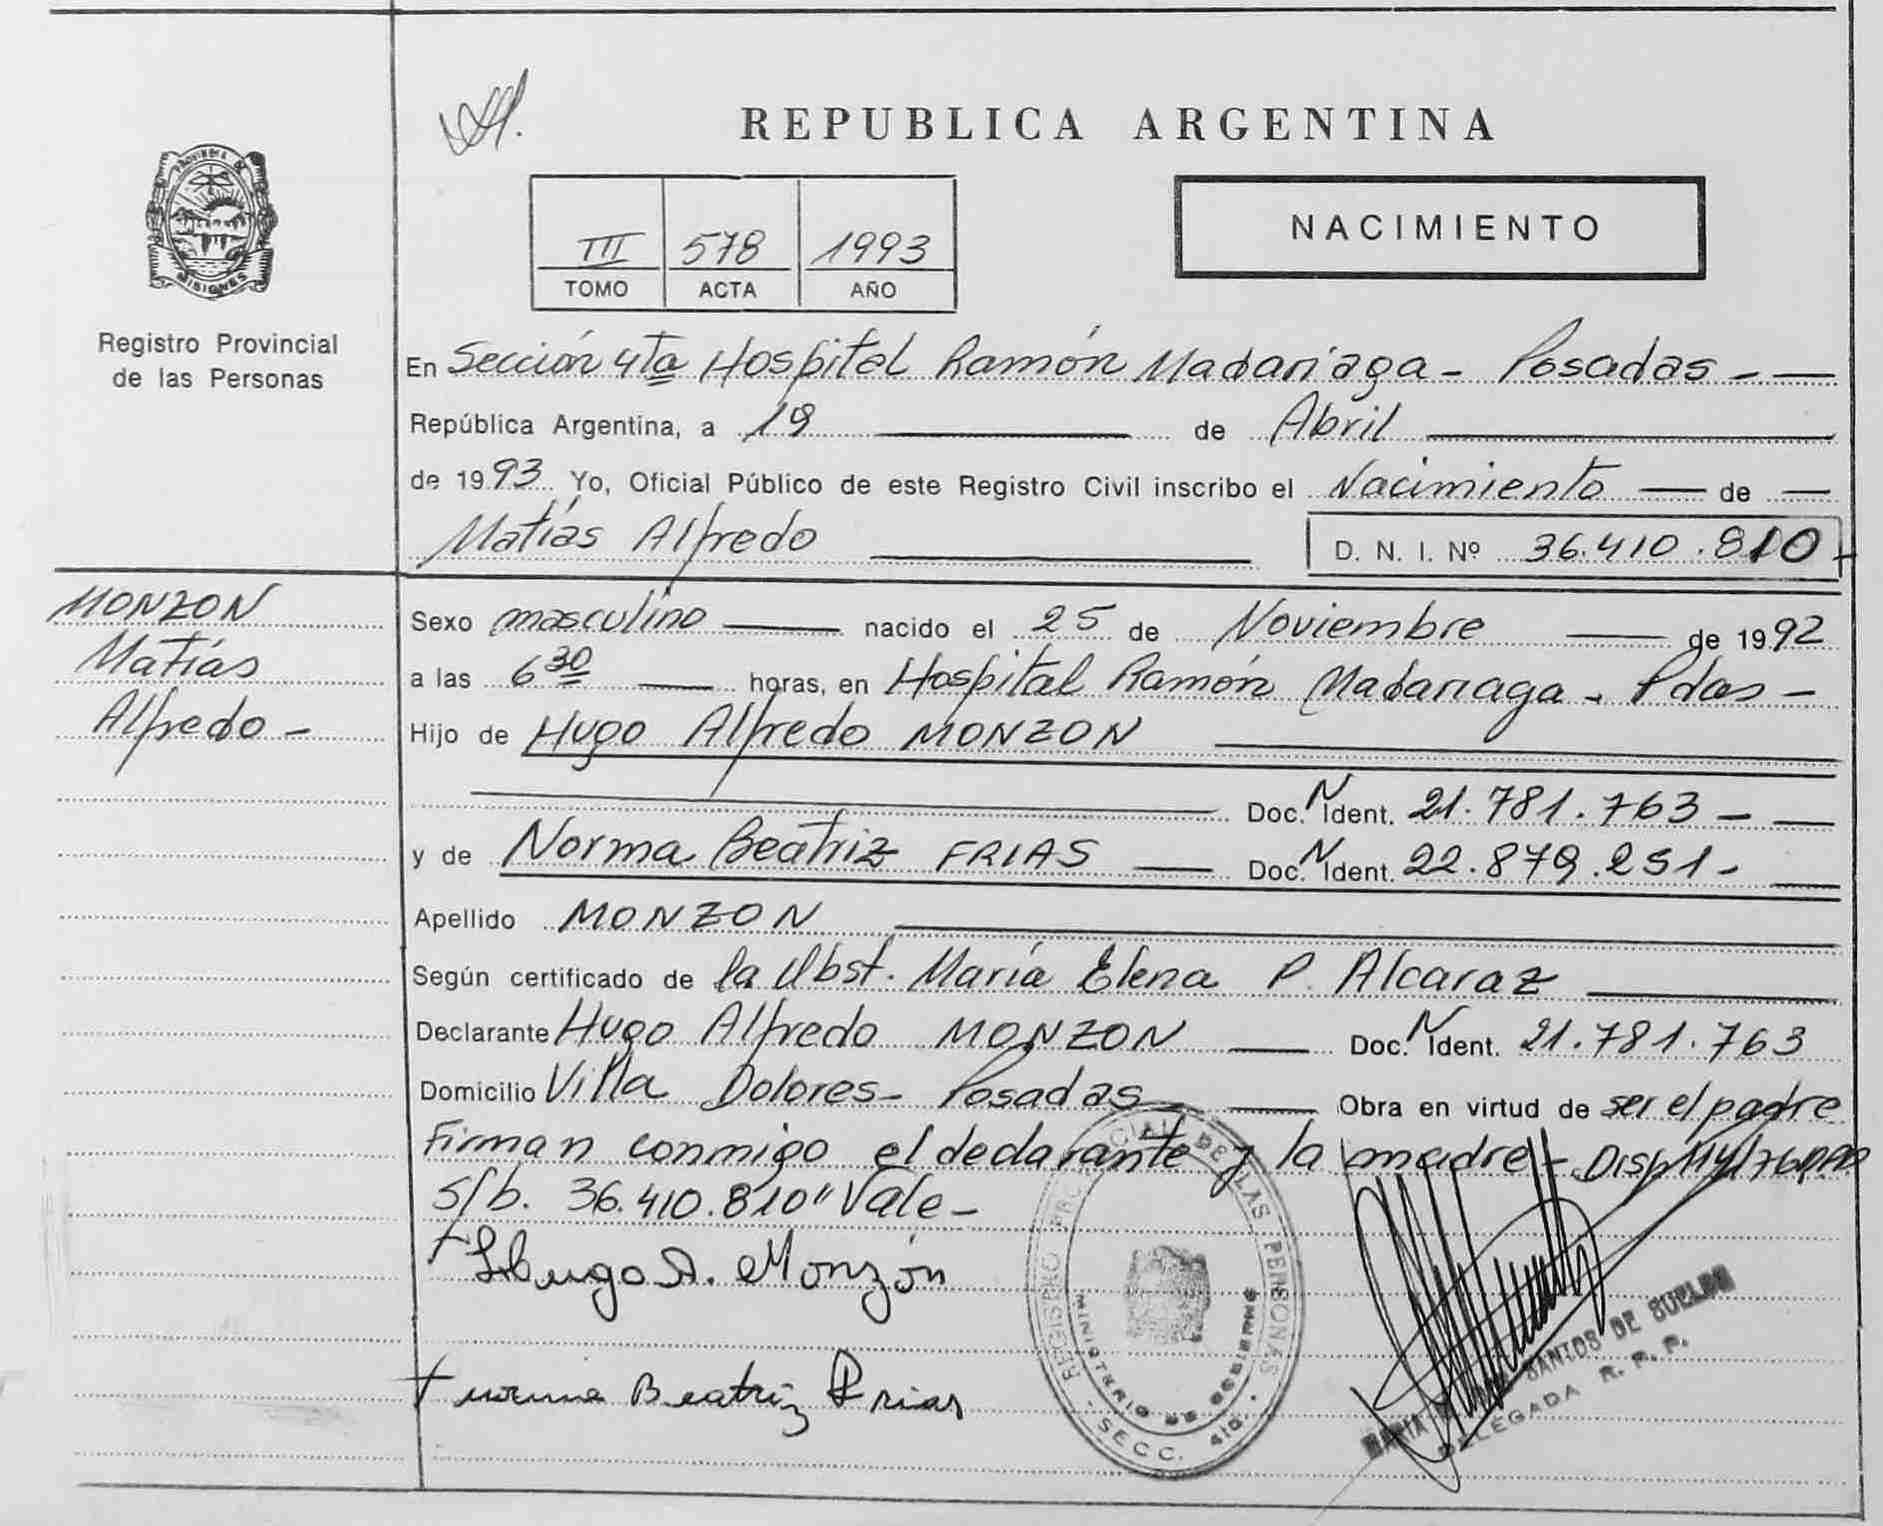 REPUBLICA ARGENTINA
PROVINCIA DE
MISIONES
Registro Provincial
de las Personas
III 578 1993
TOMO ACTA AÑO
NACIMIENTO
En Sección 4ta Hospital Ramón Madariaga - Posadas -
República Argentina, a 19 de Abril
de 1993 Yo, Oficial Público de este Registro Civil inscribo el Nacimiento de
Matías Alfredo D. N. I. Nº 36.410.810-
MONZON
Matías
Alfredo -
Sexo masculino nacido el 25 de Noviembre de 1992
a las 6 30 horas, en Hospital Ramón Madariaga - Pdas -
Hijo de Hugo Alfredo MONZON
Doc. N Ident. 21.781.763 -
y de Norma Beatriz FRIAS Doc. N Ident. 22.879.251 -
Apellido MONZON
Según certificado de la Obst. María Elena P. Alcaraz
Declarante Hugo Alfredo MONZON Doc. N Ident. 21.781.763
Domicilio Villa Dolores - Posadas Obra en virtud de ser el padre
Firman conmigo el declarante y la madre - Disp
S/b. 36.410.810" Vale -
Hugo A. Monzón
Norma Beatriz Frias
REGISTRO PROVINCIAL DE LAS PERSONAS
MINISTERIO DE GOBIERNO
- SECC. 4ta. -
MARIA SANTOS DE
DELEGADA R. P. P.